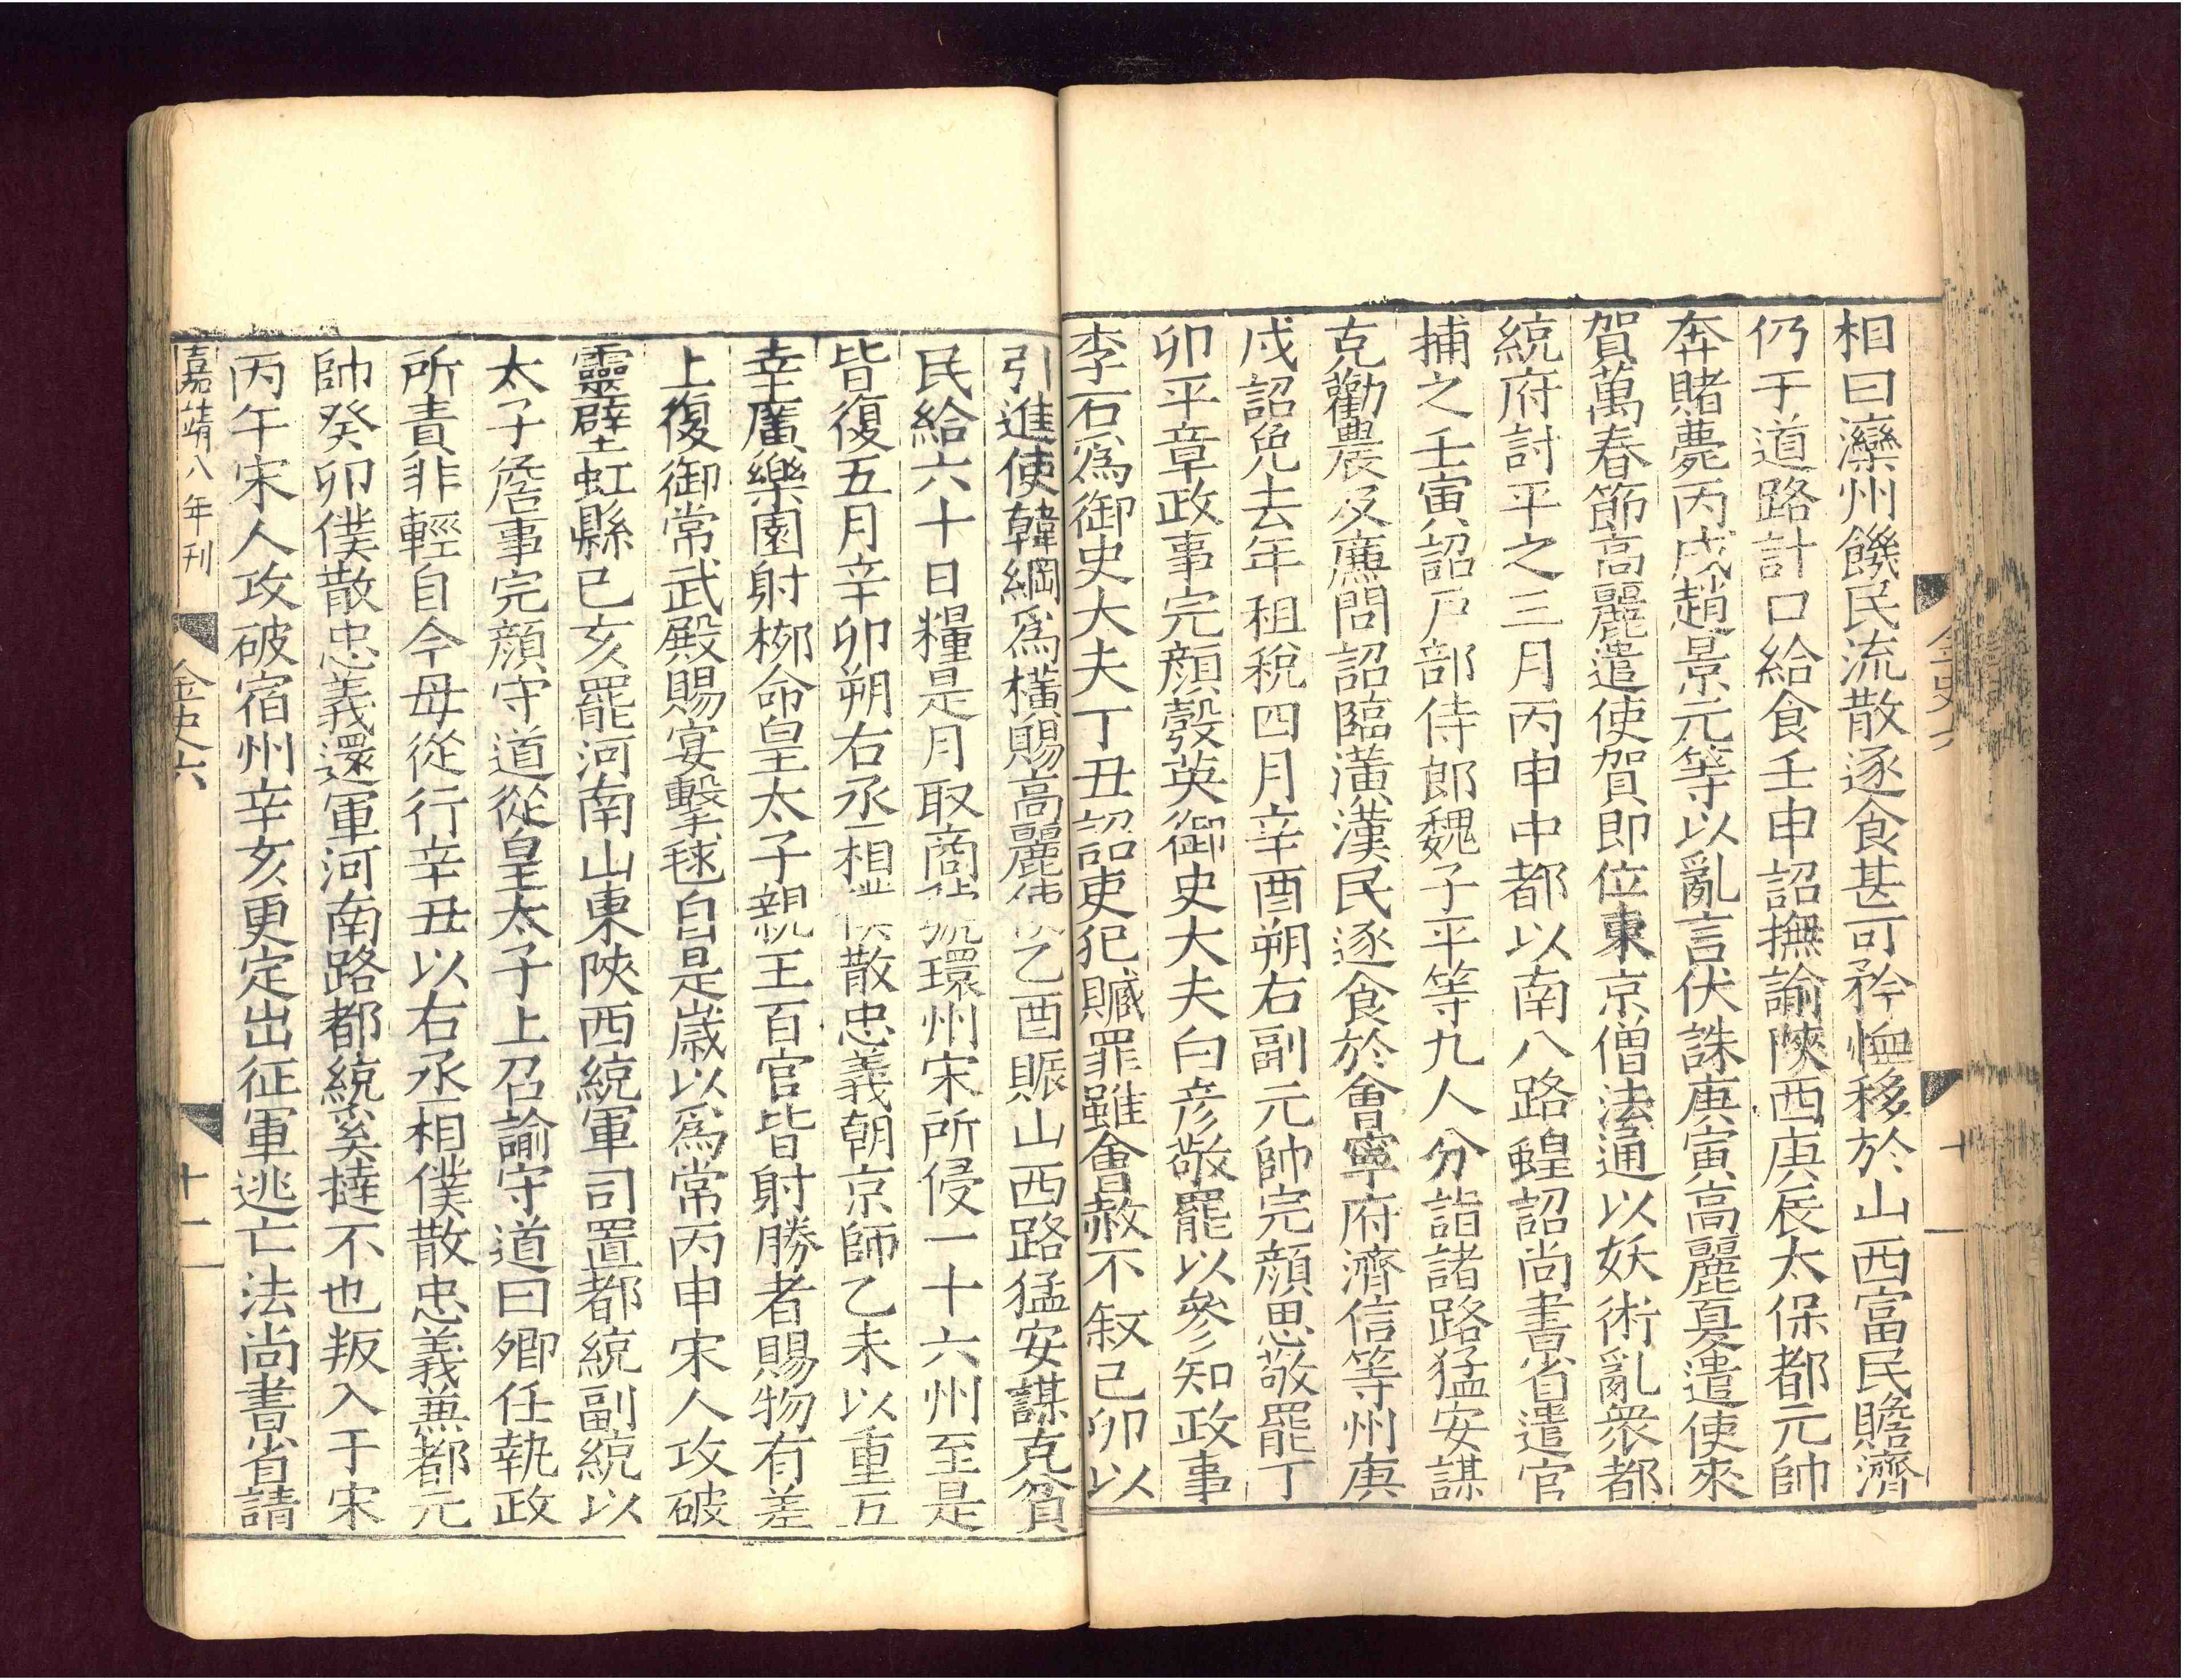 相曰灤州饑民流散逐食甚可矜恤移於山西富民贍濟
仍于道路計口給食壬申詔撫諭陝西庚辰太保都元帥
奔睹薨丙戌趙景元等以亂言伏誅庚寅高麗夏遣使來
賀萬春節高麗遣使賀即位東京僧法通以妖術亂衆都
統府討平之三月丙申中都以南八路蝗詔尚書省遣官
捕之壬寅詔戶部侍郎魏子平等九人分詣諸路猛安謀
克勸農及廉問詔臨潢漢民逐食於會寧府濟信等州庚
戌詔免去年租稅四月辛酉朔右副元帥完顏思敬罷丁
卯平章政事完顏㝅英御史大夫白彥敬罷以參知政事
李石爲御史大夫丁丑詔吏犯贓罪雖會赦不叙己卯以
金史六
十
引進使韓綱爲橫賜高麗使乙酉賑山西路猛安謀克貧
民給六十日糧是月取商虢環州宋所侵一十六州至是
皆復五月辛卯朔右丞相散忠義朝京師乙未以重五
幸廣樂園射栁命皇太子親王百官皆射勝者賜物有差
上復御常武殿賜宴擊毬自是歲以爲常丙申宋人攻破
靈壁虹縣己亥罷河南山東陝西統軍司置都統副統以
太子詹事完顏守道從皇太子上召諭守道曰卿任執政
所責非輕自今毋從行辛丑以右丞相僕散忠義兼都元
帥癸卯僕散忠義還軍河南路都統奚撻不也叛入于宋
丙午宋人攻破宿州辛亥更定出征軍逃亡法尚書省請
嘉靖八年刊
金史六
十一